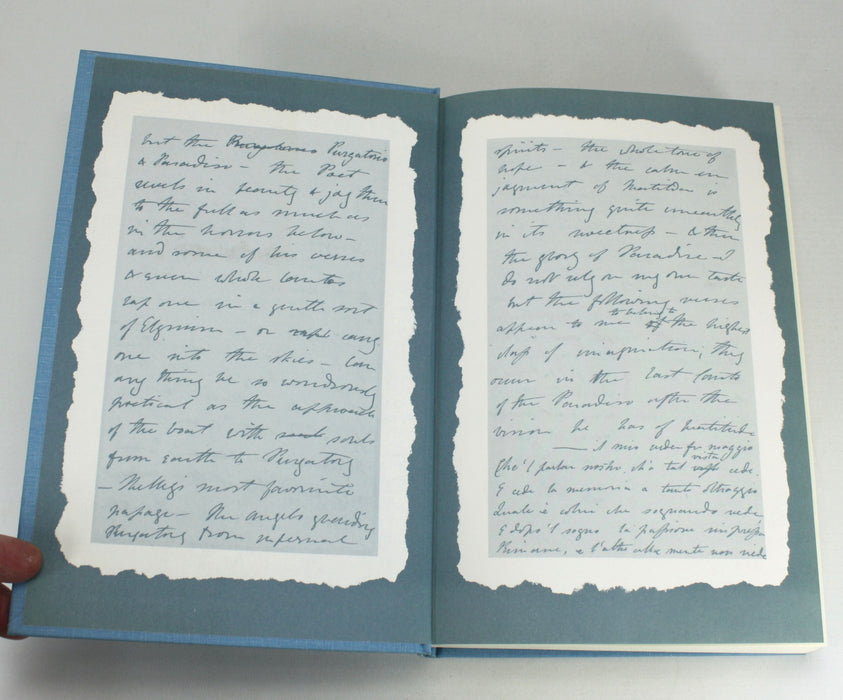 but the Purgatorio
& Paradiso – the Poet
revels in beauty & joy there
to the full as much as
in the horrors below –
and some of his verses
& even whole cantos
rap one in a gentle sort
of Elysium – or carry
one into the skies – Can
any thing be so wondrously
poetical as the approach
of the boat with souls
from earth to Purgatory
– Shelley's most favourite
passage – the Angels guarding
Purgatory from infernal
spirits – the whole tone of
hope – & the calm en
joyment of Matilda is
something quite unearthly
in its sweetness – & then
the glory of Paradise – I
do not rely on my own taste
but the following verses
appear to me to belong to the highest
class of imagination; they
occur in the last Canto
of the Paradiso after the
vision he has of beatitude
— il mio veder fu maggio
Che'l parlar nostro, ch'a tal vista cede.
E cede la memoria a tanto oltraggio
Quale è colui che sognando vede
E dopo 'l sogno la passione impressa
Rimane, e l'altro alla mente non riede